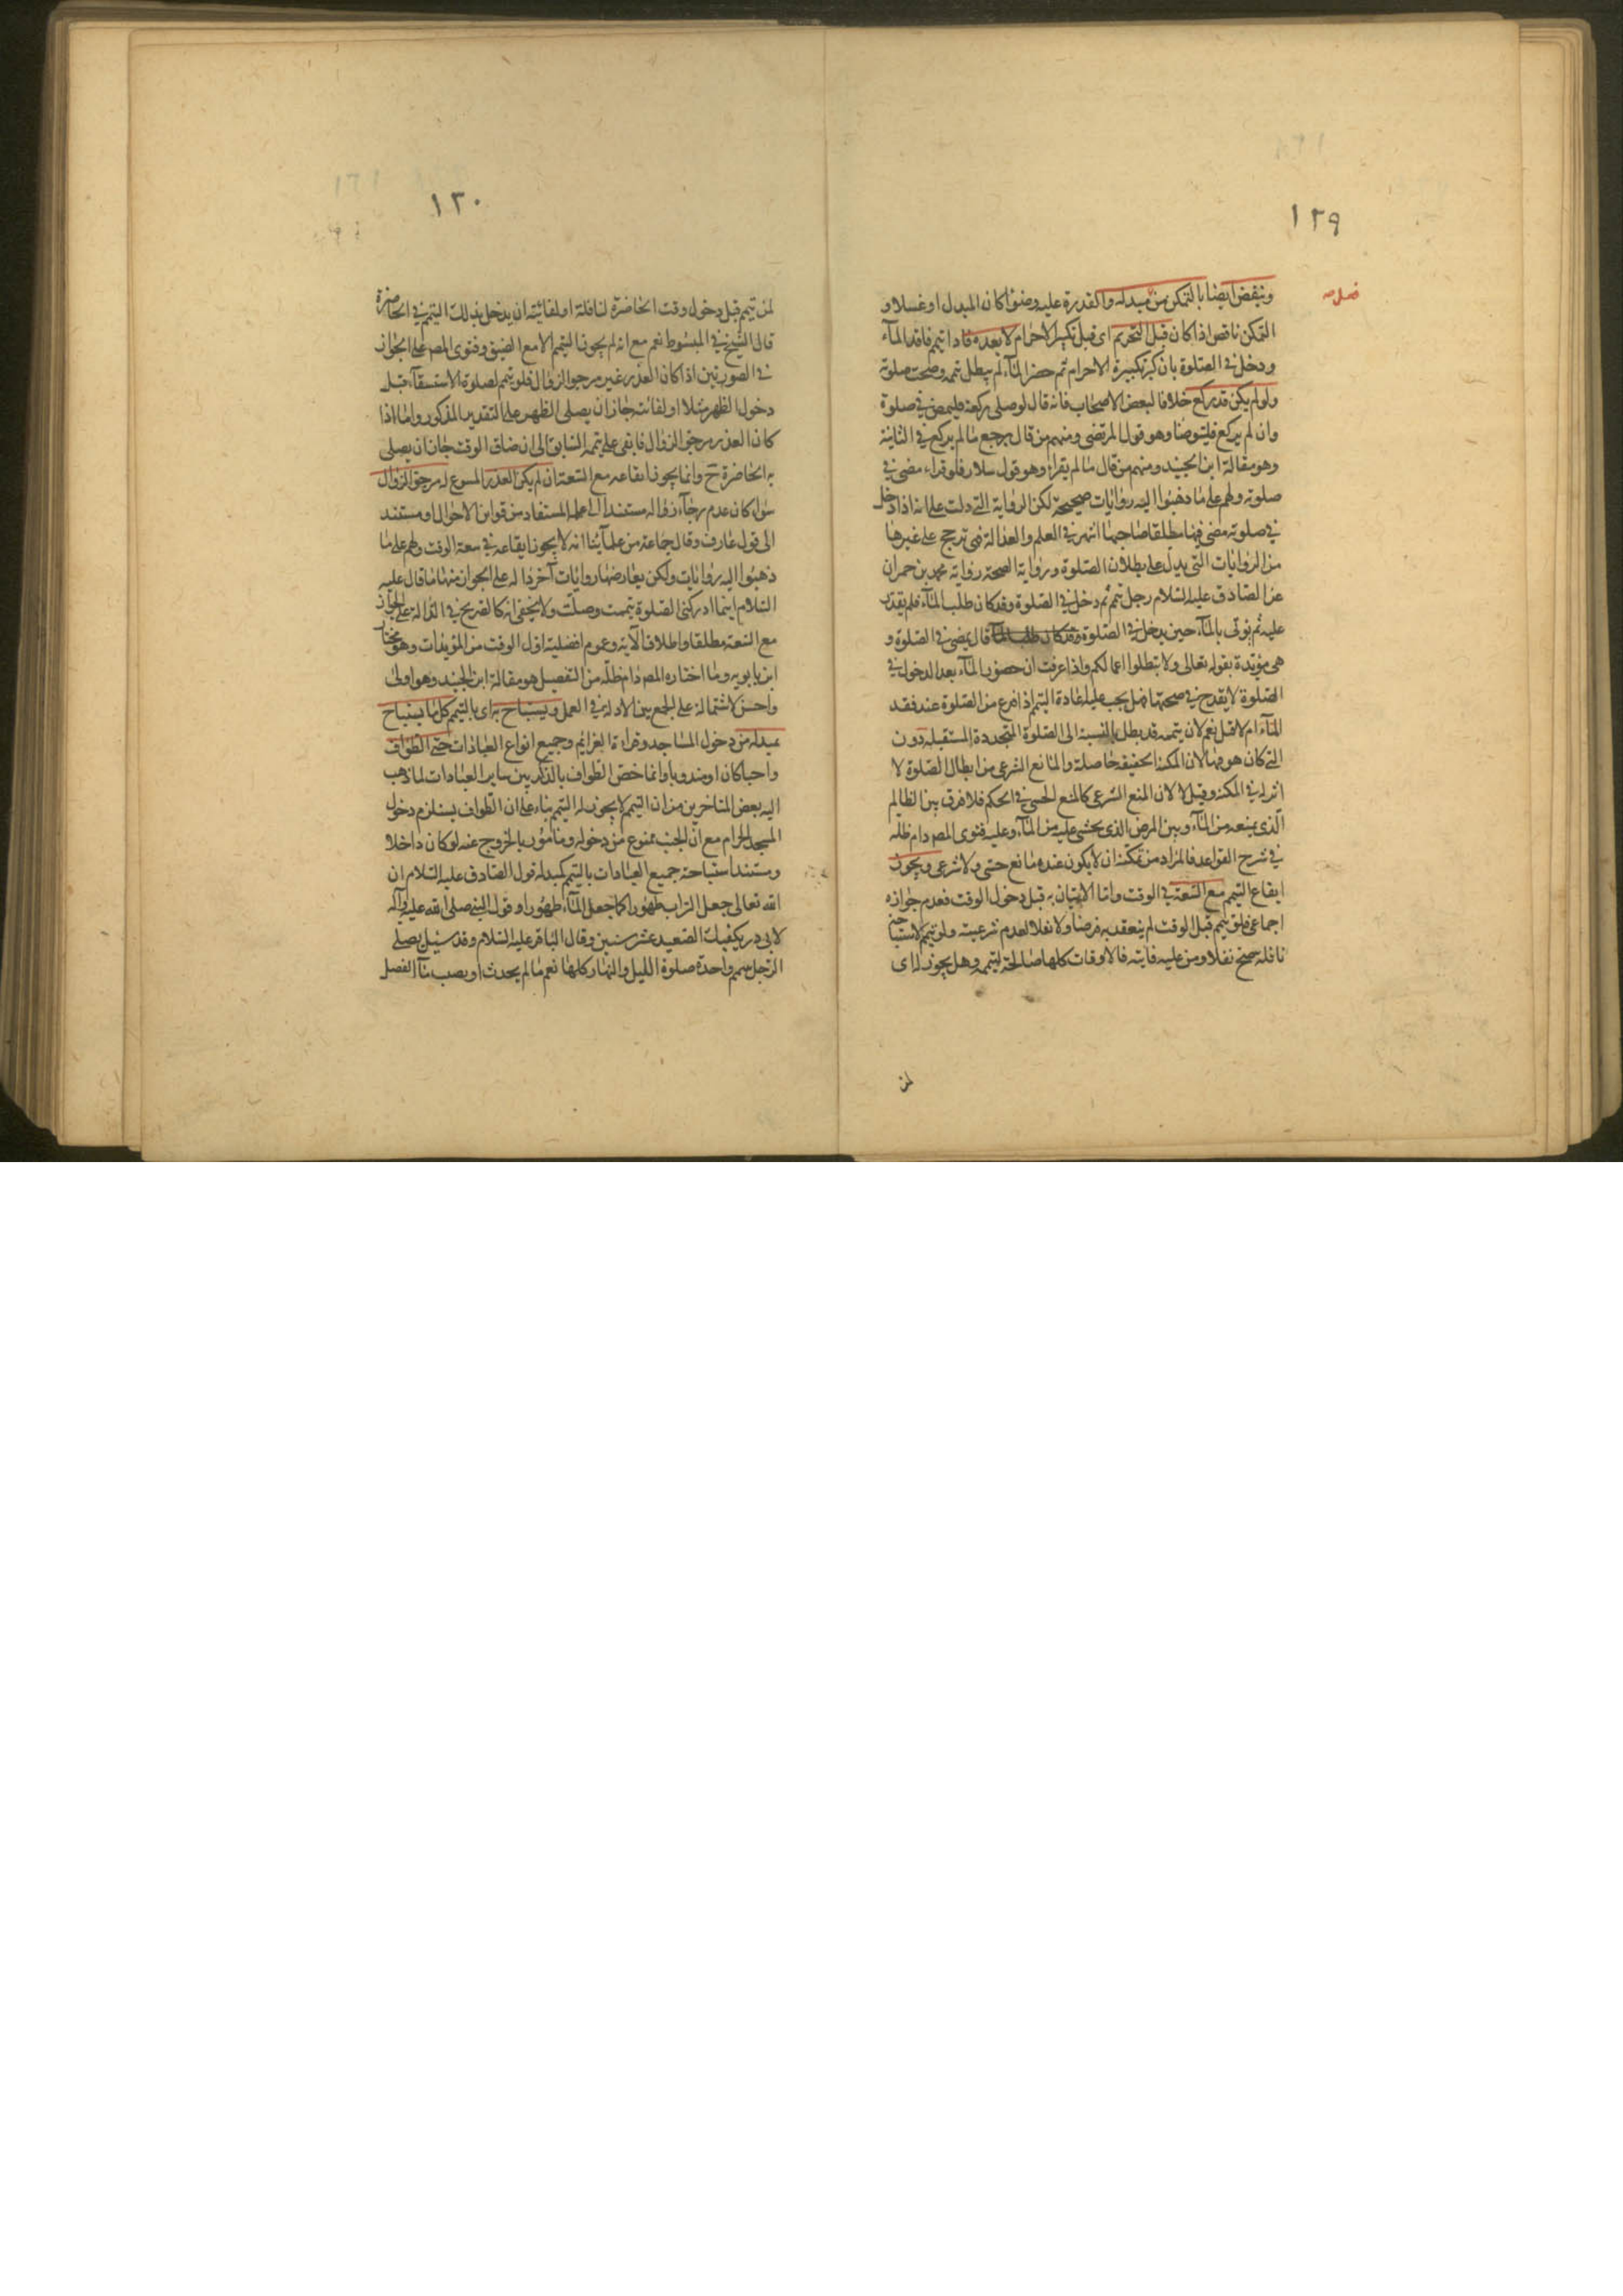 ١٢٩
وينقض ايضا بالتمكن من مبدله والقدرة عليه وضوءا كان المبدل او غسلا و
التمكن ناقص اذا كان قبل التحريم اى قبل تكبير الاحرام لا بعده فاذا تيمم فاقد المآء
ودخل فى الصلوة بان كبر تكبيرة الاحرام ثم حضر المآء لم يبطل تيممه وصحت صلوته
ولو لم يكن قد ركع خلافا لبعض الاصحاب فانه قال لو صلى ركعة فليمض فى صلوة
وان لم يركع فليتوضا وهو قول المرتضى ومنهم من قال يرجع ما لم يركع فى الثانية
وهو مقالة ابن الجنيد ومنهم من قال ما لم يقرا وهو قول سلار فلو قراء مضى فى
صلوته ولهم على ما ذهبوا اليه روايات صحيحة لكن الرواية التى دلت على انه اذا دخل
فى صلوته مضى فيها مطلقا صاحبها اشهر فى العلم والعدالة فهى ترجح على غيرها
من الروايات التى يدل على بطلان الصلوة ورواية الصحة رواية محمد بن حمران
عن الصادق عليه السلام رجل تيمم ثم دخل فى الصلوة وقد كان طلب المآء فلم يقدر
عليه ثم يوتى بالمآء حين يدخل فى الصلوة وقد كان طلب المآء قال يمضى فى الصلوة و
هى مؤيدة بقوله تعالى ولا تبطلوا اعمالكم واذا عرفت ان حضور المآء بعد الدخول فى
الصلوة لا يقدح فى صحتها فهل يجب عليه اعادة التيمم اذا فرغ من الصلوة عند فقد
المآء ام لا قيل نعم لان تيممه قد بطل بالنسبة الى الصلوة المتجددة المستقبلة دون
التى كان هو فيها لان المكنة الحقيقة حاصلة والمانع الشرعى من ابطال الصلوة لا
اثر له فى المكنة وقيل لا لان المنع الشرعى كالمنع الحسى فى الحكم فلا فرق بين الظالم
الذى يمنعه من المآء وبين المرض الذى يخشى عليه من المآء وعليه فتوى المصـ دام ظله
فى شرح القواعد فالمراد من تمكنه ان لا يكون عنده مانع حسى ولا شرعى ويجوز
ايقاع التيمم مع السعة فى الوقت واما الاتيان به قبل دخول الوقت فعدم جوازه
اجماعى فلو تيمم قبل الوقت لم ينعقد به فرضا ولا نفلا لعدم شرعيته ولو تيمم لاستباحة
نافلة صح نفلا ومن عليه فايتة فالاوقات كلها صالحة لتيممه وهل يجوز له اى
لمن
١٣٠
لمن تيمم قبل دخول وقت الحاضرة لنافلة او لفائتة ان يدخل بذلك التيمم فى الحاضرة
قال الشيخ فى المبسوط نعم مع انه لم يجوز التيمم الا مع الضيق وفتوى المصـ على الجواز
فى الصورتين اذا كان العذر غير مرجو الزوال فلو تيمم لصلوة الاستسقآء قبل
دخول الظهر مثلا او لفائت جاز ان يصلى الظهر على التقدير المذكور واما اذا
كان العذر مرجو الزوال فابقى على تيممه السابق الى ان ضاق الوقت جاز ان يصلى
به الحاضرة ح وانما يجوز ايقاعه مع السعة ان لم يكن العذر المسوغ له مرجو الزوال
سواء كان عدم رجآء زواله مستندا الى علمه المستفاد من قراين الاحوال او مستند
الى قول عارف وقال جماعة من علمآئنا انه لا يجوز ايقاعه فى سعة الوقت ولهم على ما
ذهبوا اليه روايات ولكن يعارضها روايات آخر دالة على الجواز منها ما قال عليه
السلام اينما ادركنى الصلوة تيممت وصليت ولا يخفى انه كالصريح فى الدالة على الجواز
مع السعة مطلقا واطلاق الآية وعموم افضلية اول الوقت من المؤيدات وهو مختار
ابن بابويه وما اختاره المصـ دام ظله من التفصيل هو مقالة ابن الجنيد وهو اولى
واحسن لاشتماله على الجمع بين الادلة فى العمل ويستباح به اى بالتيمم كل ما يستباح
بمبدله من دخول المساجد وقراءة العزايم وجميع انواع العبادات حتى الطواف
واجبا كان او مندوبا وانما خص الطواف بالذكر من بين ساير العبادات لما ذهب
اليه بعض المتاخرين من ان التيمم لا يجوز له التيمم بناء على ان الطواف يستلزم دخول
المسجد الحرام مع ان الجنب ممنوع من دخوله ومامور بالخروج عنه لو كان داخلا
ومستند استباحة جميع العبادات بالتيمم كمبدله قول الصادق عليه السلام ان
الله تعالى جعل التراب طهورا كما جعل المآء طهورا وقول النبى صلى الله عليه وآله
لابى ذر يكفيك الصعيد عشر سنين وقال الباقر عليه السلام وقد سئل يصلى
الرجل بتيمم واحدة صلوة الليل والنهار كلها نعم ما لم يحدث او يصب مآء الفصل